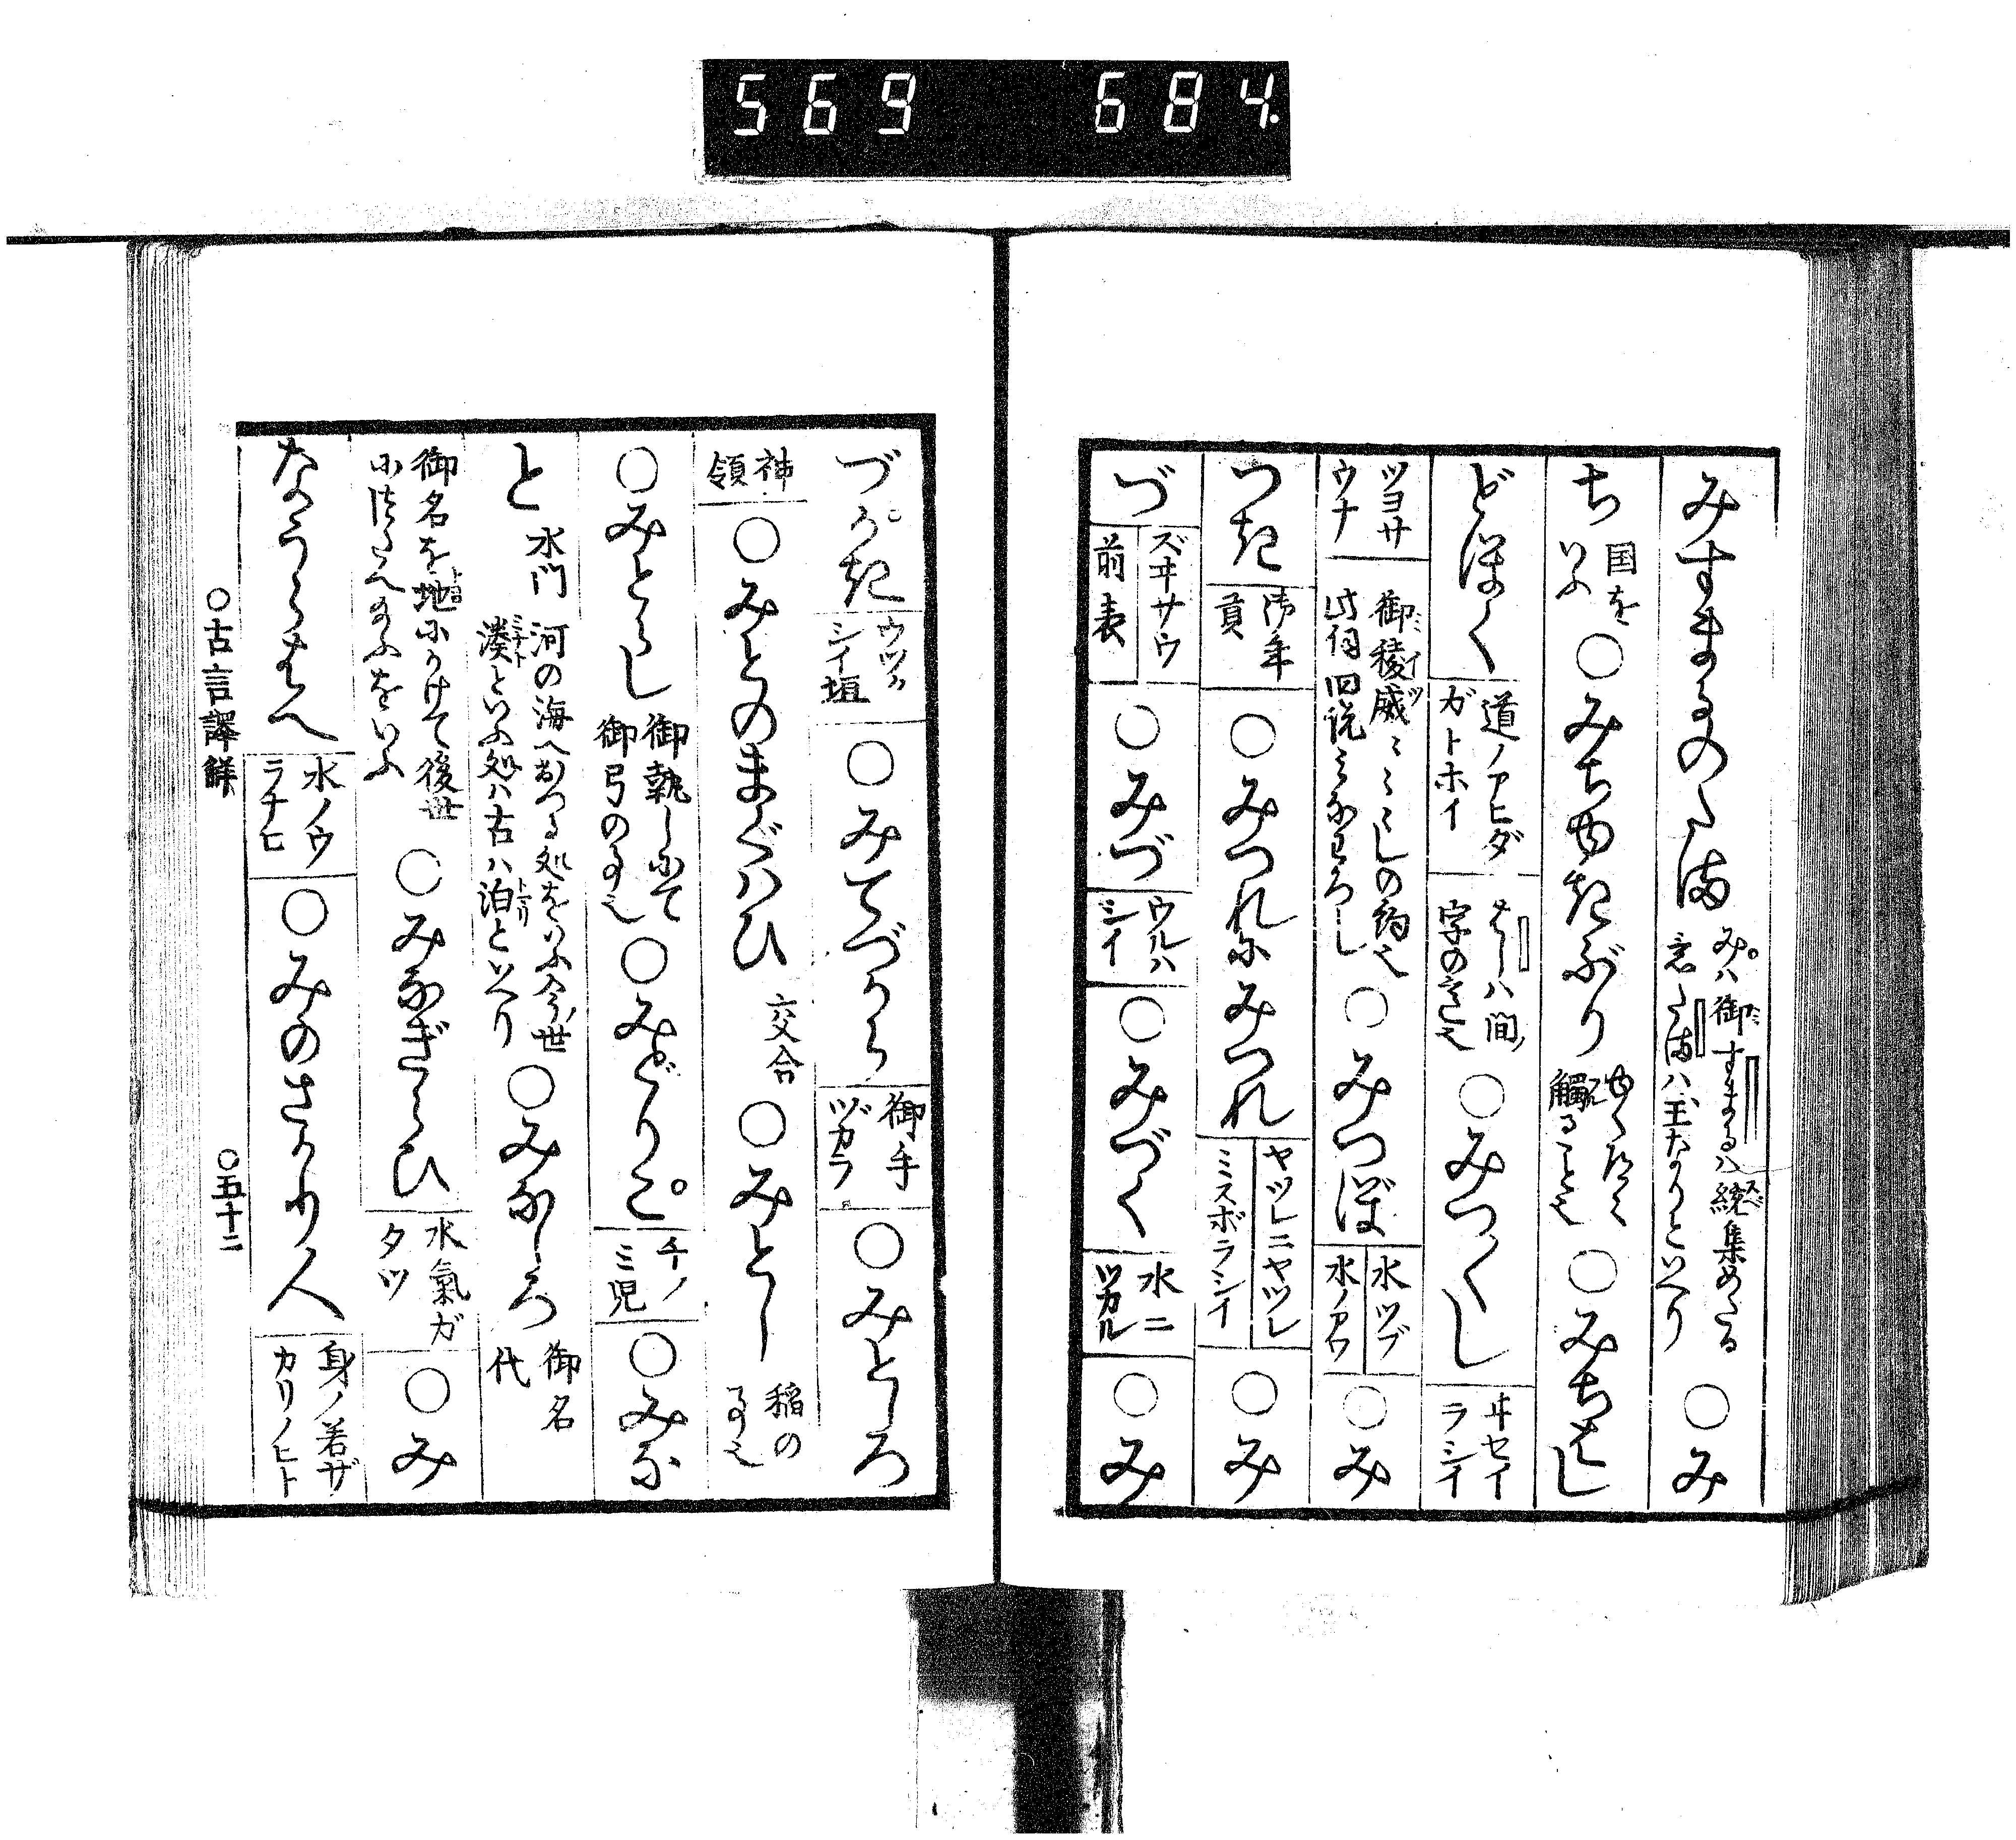 569 684.
みすまるのたま みハ御すまるハ統集めたる
意たまハ玉なりといへり ○み
ち 国を
いふ ○みちゆきぶり ゆくさきに
觸ることも ○みちはし
どほく 道ノアヒダ
ガトホイ はしハ間ノ
字の意也 ○みつ〳〵し ヰセイ
ラシイ
ツヨサ
ウナ 御稜威ミミミしの約也
此何旧説ミなわろし ○みつぼ 水ツブ
水ノアワ ○み
つき 御年
貢 ○みつれにみつれ ヤツレニヤツレ
ミスボラシイ ○み
づ ズヰサウ
前表 ○みづ ウルハ
シイ ○みづく 水ニ
ツカル ○み
づがき ウツク
シイ垣 ○みてづから 御手
ヅカラ ○みとしろ
神
領 ○みとのまぐハひ 交合 ○みとし 稲の
事也
○みとらし 御執しにて
御弓の事也 ○みどりこ チノ
ミ児 ○みな
と 水門 河の海へおつる処をいふ今ノ世
湊といふ処ハ古ハ泊といへり ○みなしろ 御名
代
御名を地にかけて後世
につたへ給ふをいふ ○みなぎらひ 水氣ガ
タツ ○み
なうらはへ 水ノウ
ラナヒ ○みのさかり人 身ノ若ザ
カリノヒト
○古言譯解 ○五十二